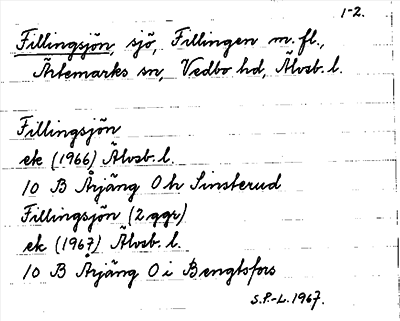 1-2.
Fillingsjön, sjö, Fillingen m. fl.,
Ärtemarks sn, Vedbo hd, Älvsb. l.
Fillingsjön
ek (1966) Älvsb. l.
10 B Årjäng O h Sinsterud
Fillingsjön (2 ggr)
ek (1967) Älvsb. l.
10 B Årjäng O i Bengtsfors
S.P.-L. 1967.